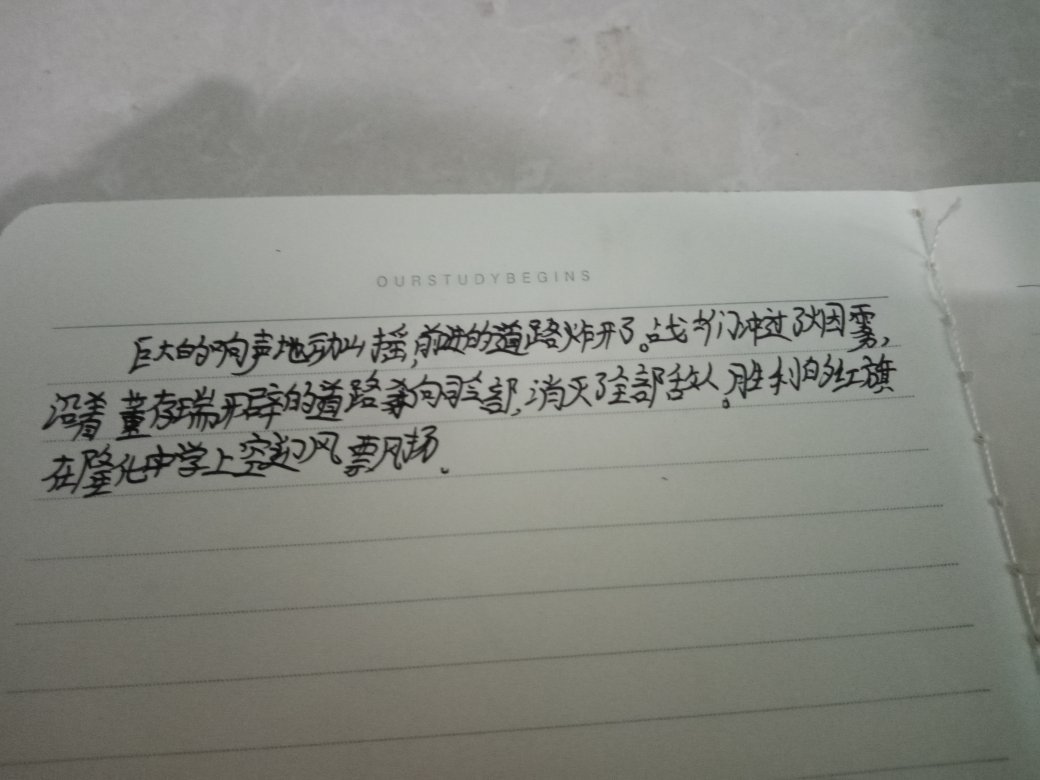 OURSTUDYBEGINS
巨大的响声地动山摇,前进的道路炸开了。战士们冲过了烟雾,
沿着董存瑞开辟的道路杀向司令部,消灭了全部敌人。胜利的红旗
在隆化中学上空迎风飘扬。